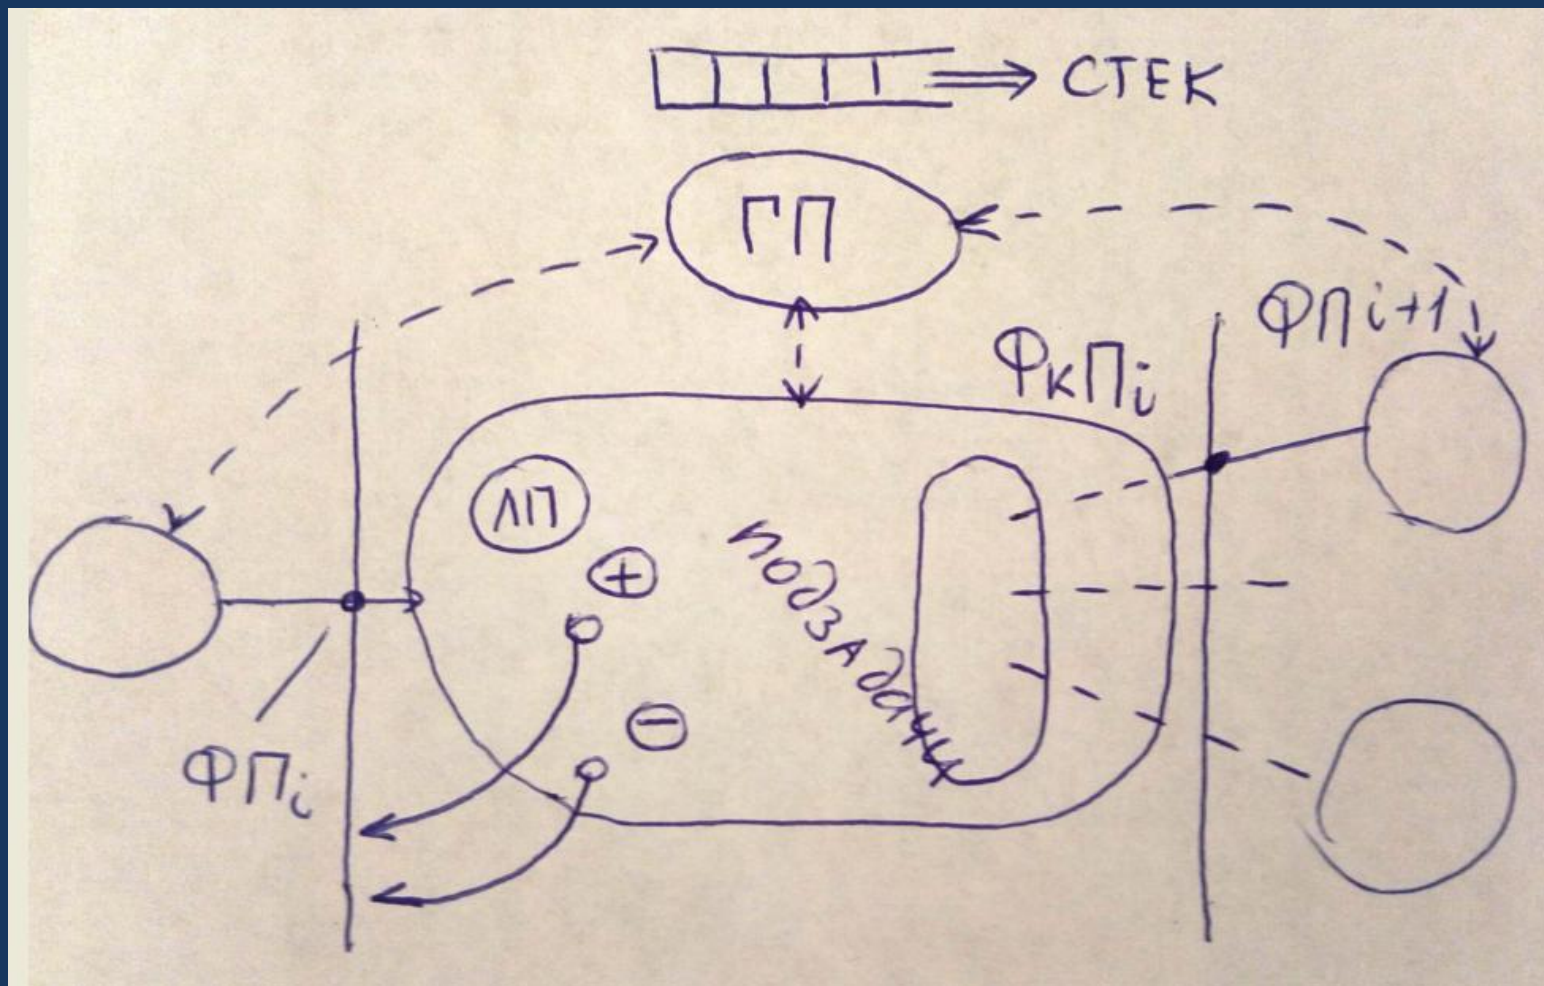 СТЕК
ГП
ФПi+1
ФкПi
ЛП
+
подзадачи
−
ФПi